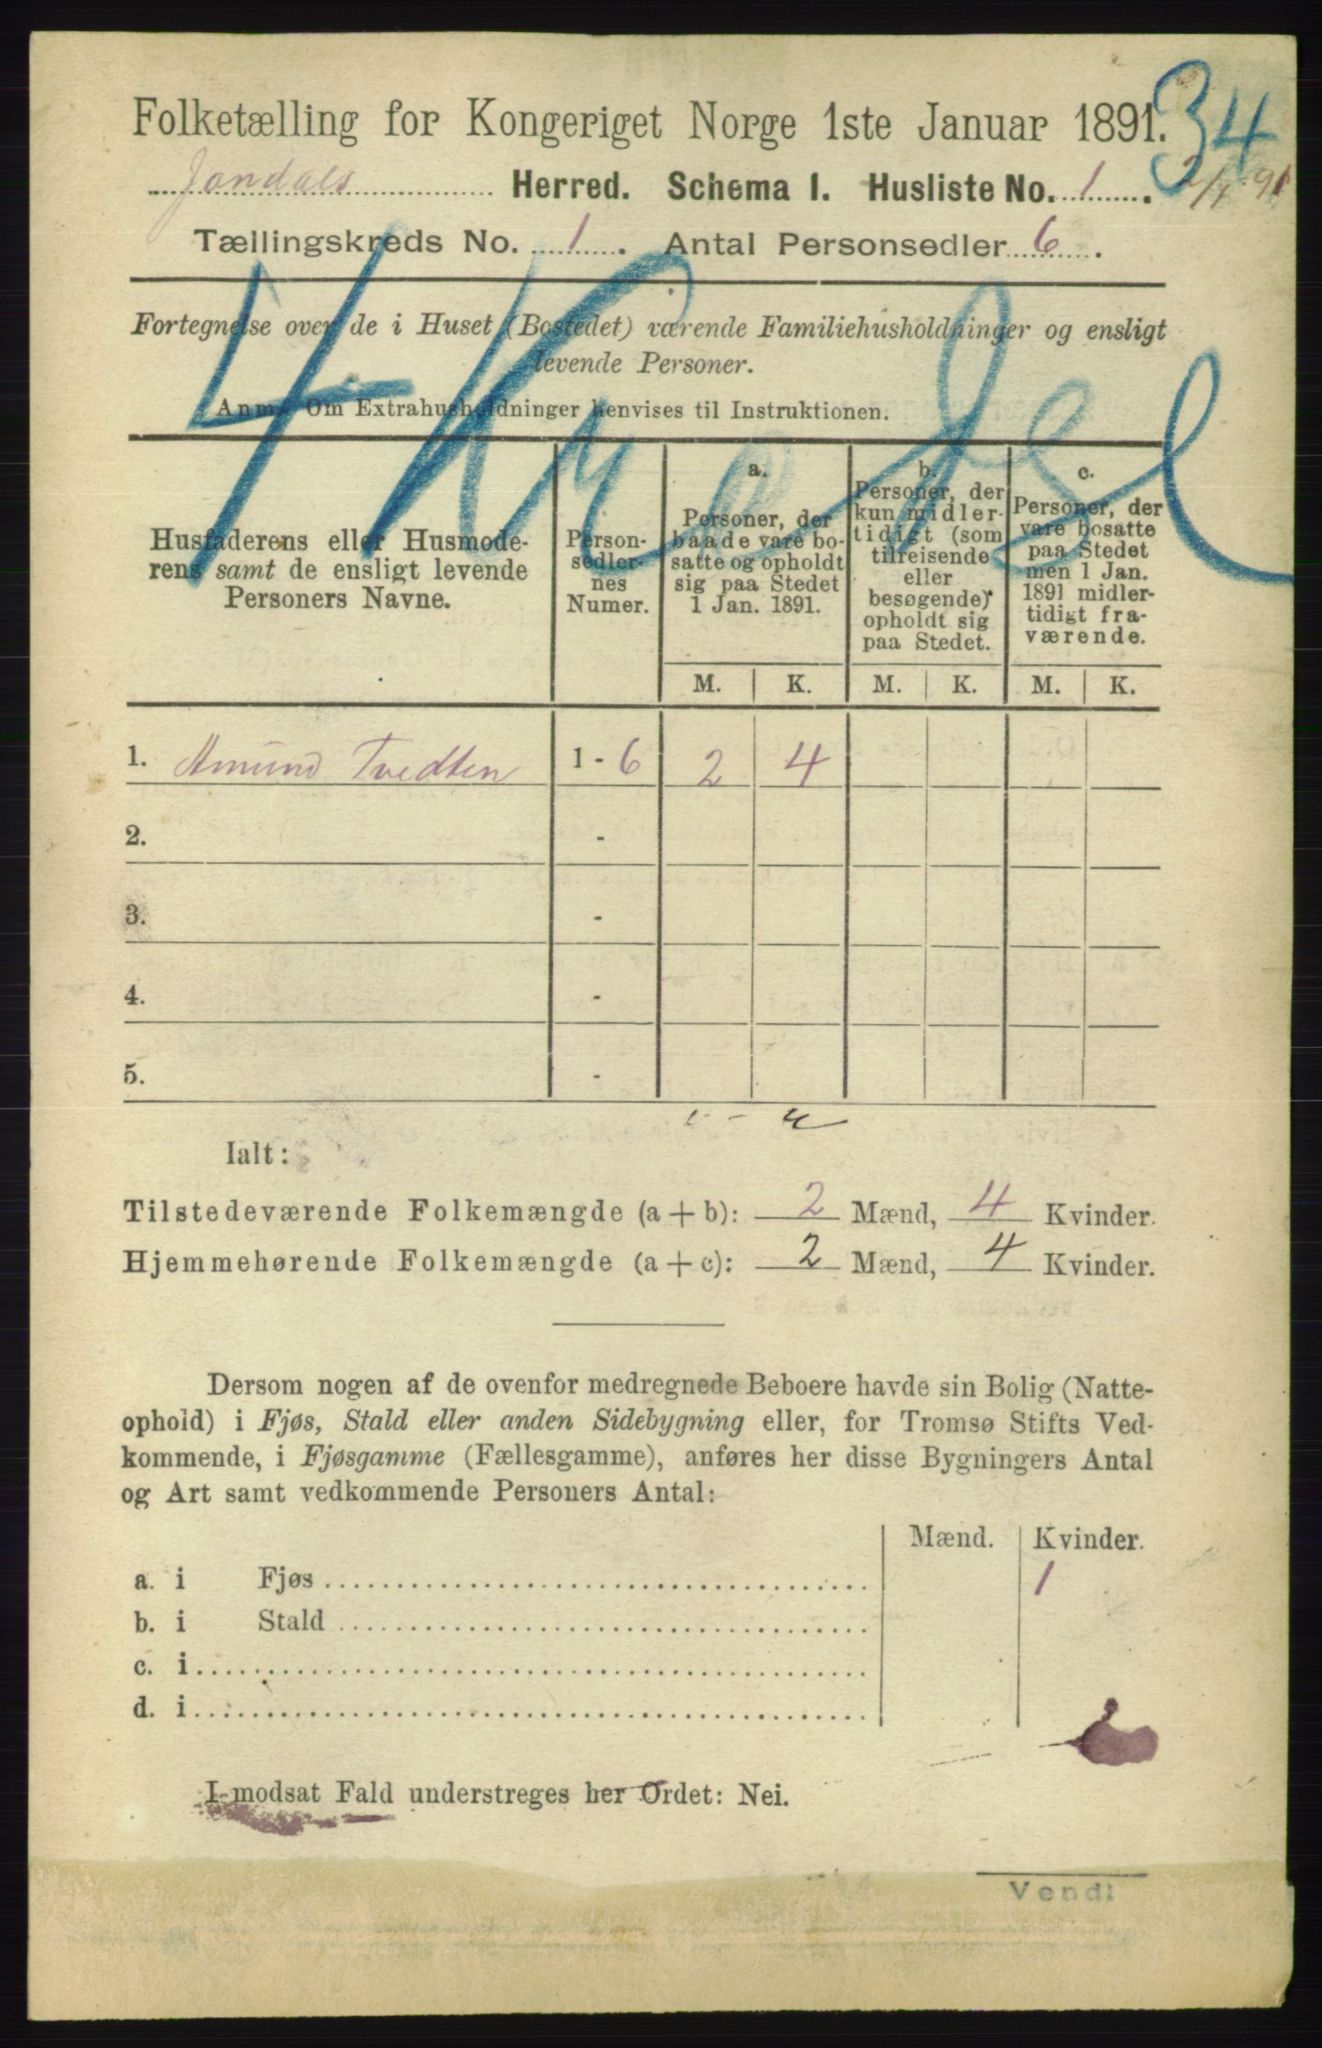 34
Folketælling for Kongeriget Norge 1ste Januar 1891.
Jondals Herred. Schema 1. Husliste No. 1.
Tællingskreds No. 1. Antal Personsedler 6.
4 Kredse
Fortegnelse over de i Huset (Bostedet) værende Familiehusholdninger og ensligt
levende Personer.
Anm. Om Extrahusholdninger henvises til Instruktionen.
Husfaderens eller Husmode-
rens samt de ensligt levende
Personers Navne.
Person-
sedler-
nes
Numer.
a.
Personer, der
baade vare bo-
satte og opholdt
sig paa Stedet
1 Jan. 1891.
b.
Personer, der
kun midler-
tidigt (som
tilreisende
eller
besøgende)
opholdt sig
paa Stedet.
c.
Personer, der
vare bosatte
paa Stedet
men 1 Jan.
1891 midler-
tidigt fra-
værende.
M. K. M. K. M. K.
1. Amund Tvedten 1 - 6 2 4
2. -
3. -
4. -
5. -
- 4
Ialt:
Tilstedeværende Folkemængde (a + b): 2 Mænd, 4 Kvinder.
Hjemmehørende Folkemængde (a + c): 2 Mænd, 4 Kvinder.
Dersom nogen af de ovenfor medregnede Beboere havde sin Bolig (Natte-
ophold) i Fjøs, Stald eller anden Sidebygning eller, for Tromsø Stifts Ved-
kommende, i Fjøsgamme (Fællesgamme), anføres her disse Bygningers Antal
og Art samt vedkommende Personers Antal:
Mænd. Kvinder.
a. i Fjøs 1
b. i Stald
c. i
d. i
I modsat Fald understreges her Ordet: Nei.
Vend!